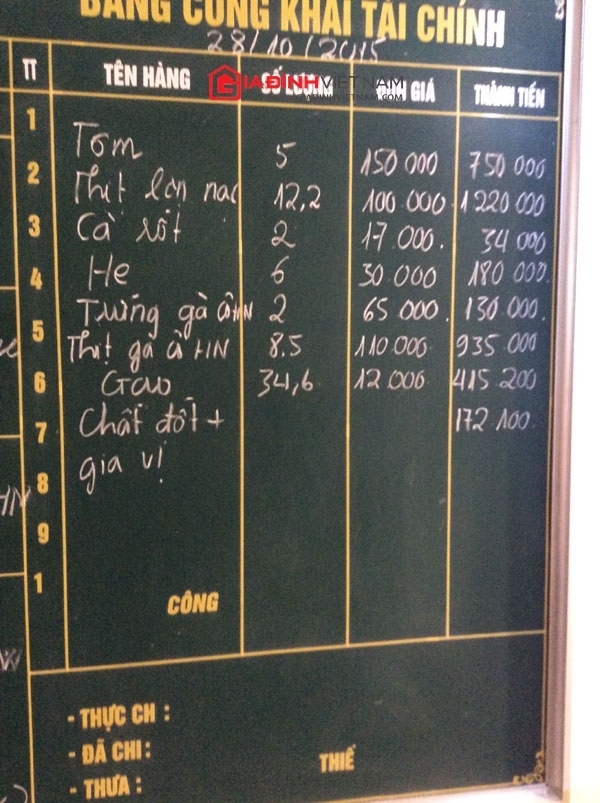 BẢNG CÔNG KHAI TÀI CHÍNH
28/10/2015
GIAĐÌNHVIETNAM
GIADINHVIETNAM.COM
TT TÊN HÀNG SỐ LƯỢNG GIÁ THÀNH TIỀN
1 Tôm 5 150 000 750 000
2 Thịt lợn nạc 12,2 100 000 1 220 000
3 Cà rốt 2 17 000. 34 000
4 Hẹ 6 30 000 180 000.
Trứng gà ÂHN 2 65 000. 130 000.
5 Thịt gà ÂHN 8.5 110 000 935 000
6 Gạo 34,6 12 000 415 200
7 Chất đốt + 172 100.
8 gia vị
9
1
CÔNG
- THỰC CH :
- ĐÃ CHI:
- THƯA :
THIẾ
HN